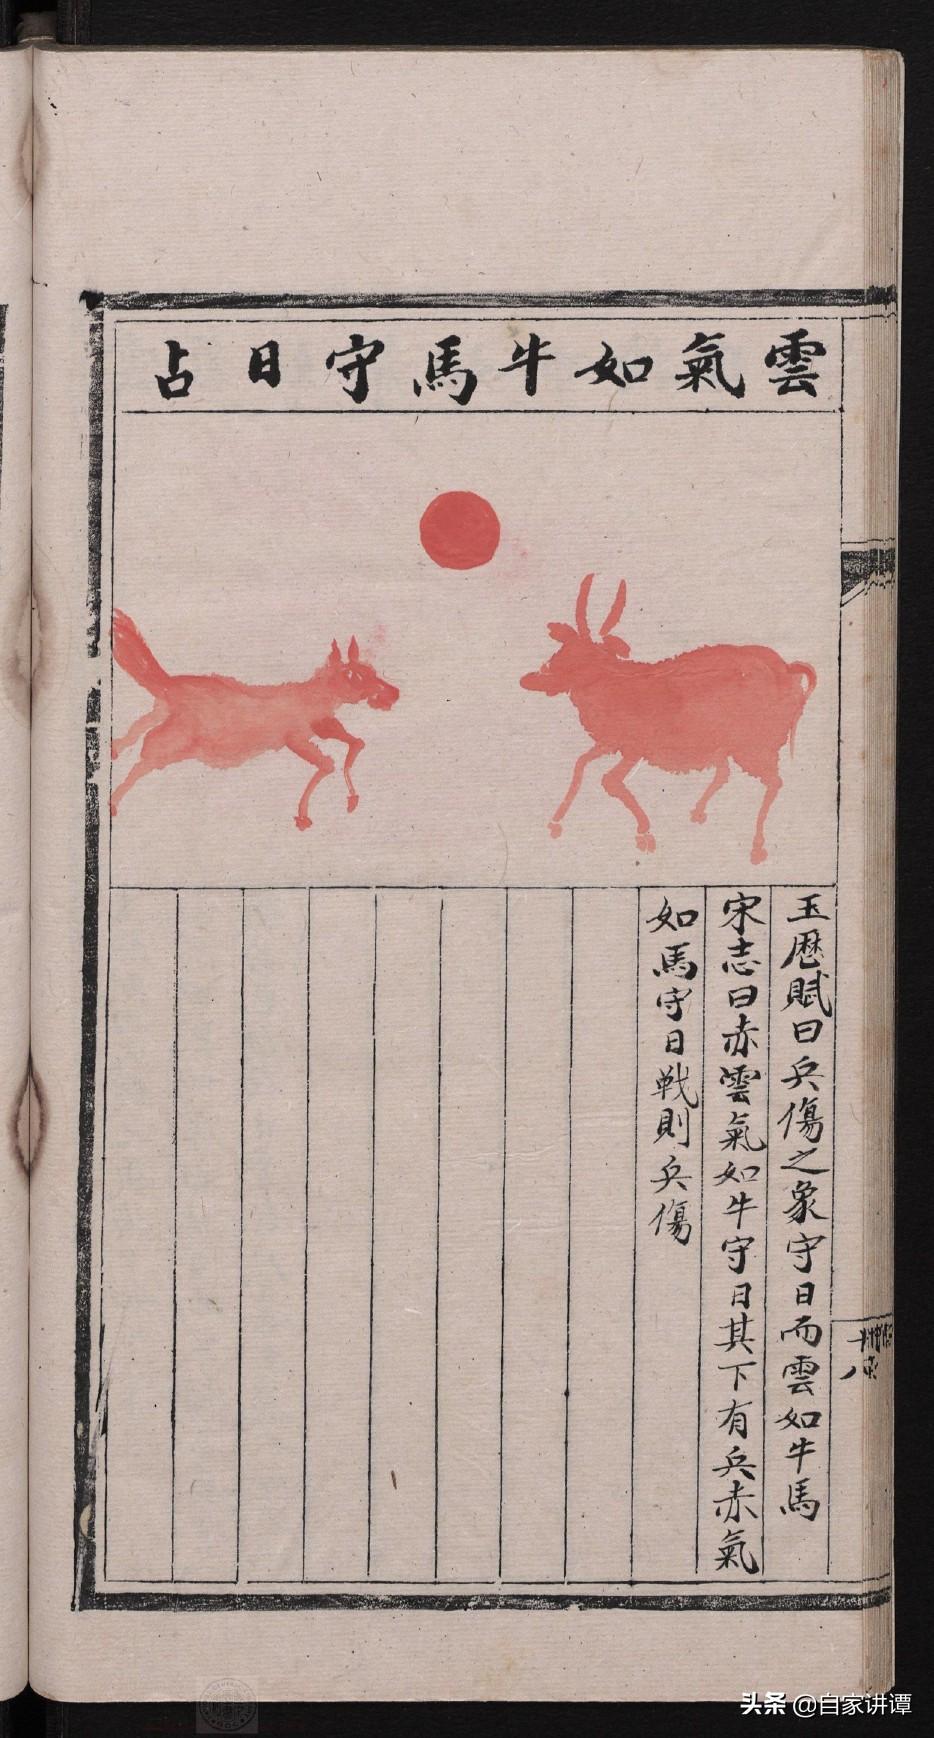 雲氣如牛馬守日占
玉歴賦曰兵傷之象守日而雲如牛馬
宋志曰赤雲氣如牛守日其下有兵赤氣
如馬守日戰則兵傷
头条 @自家讲谭